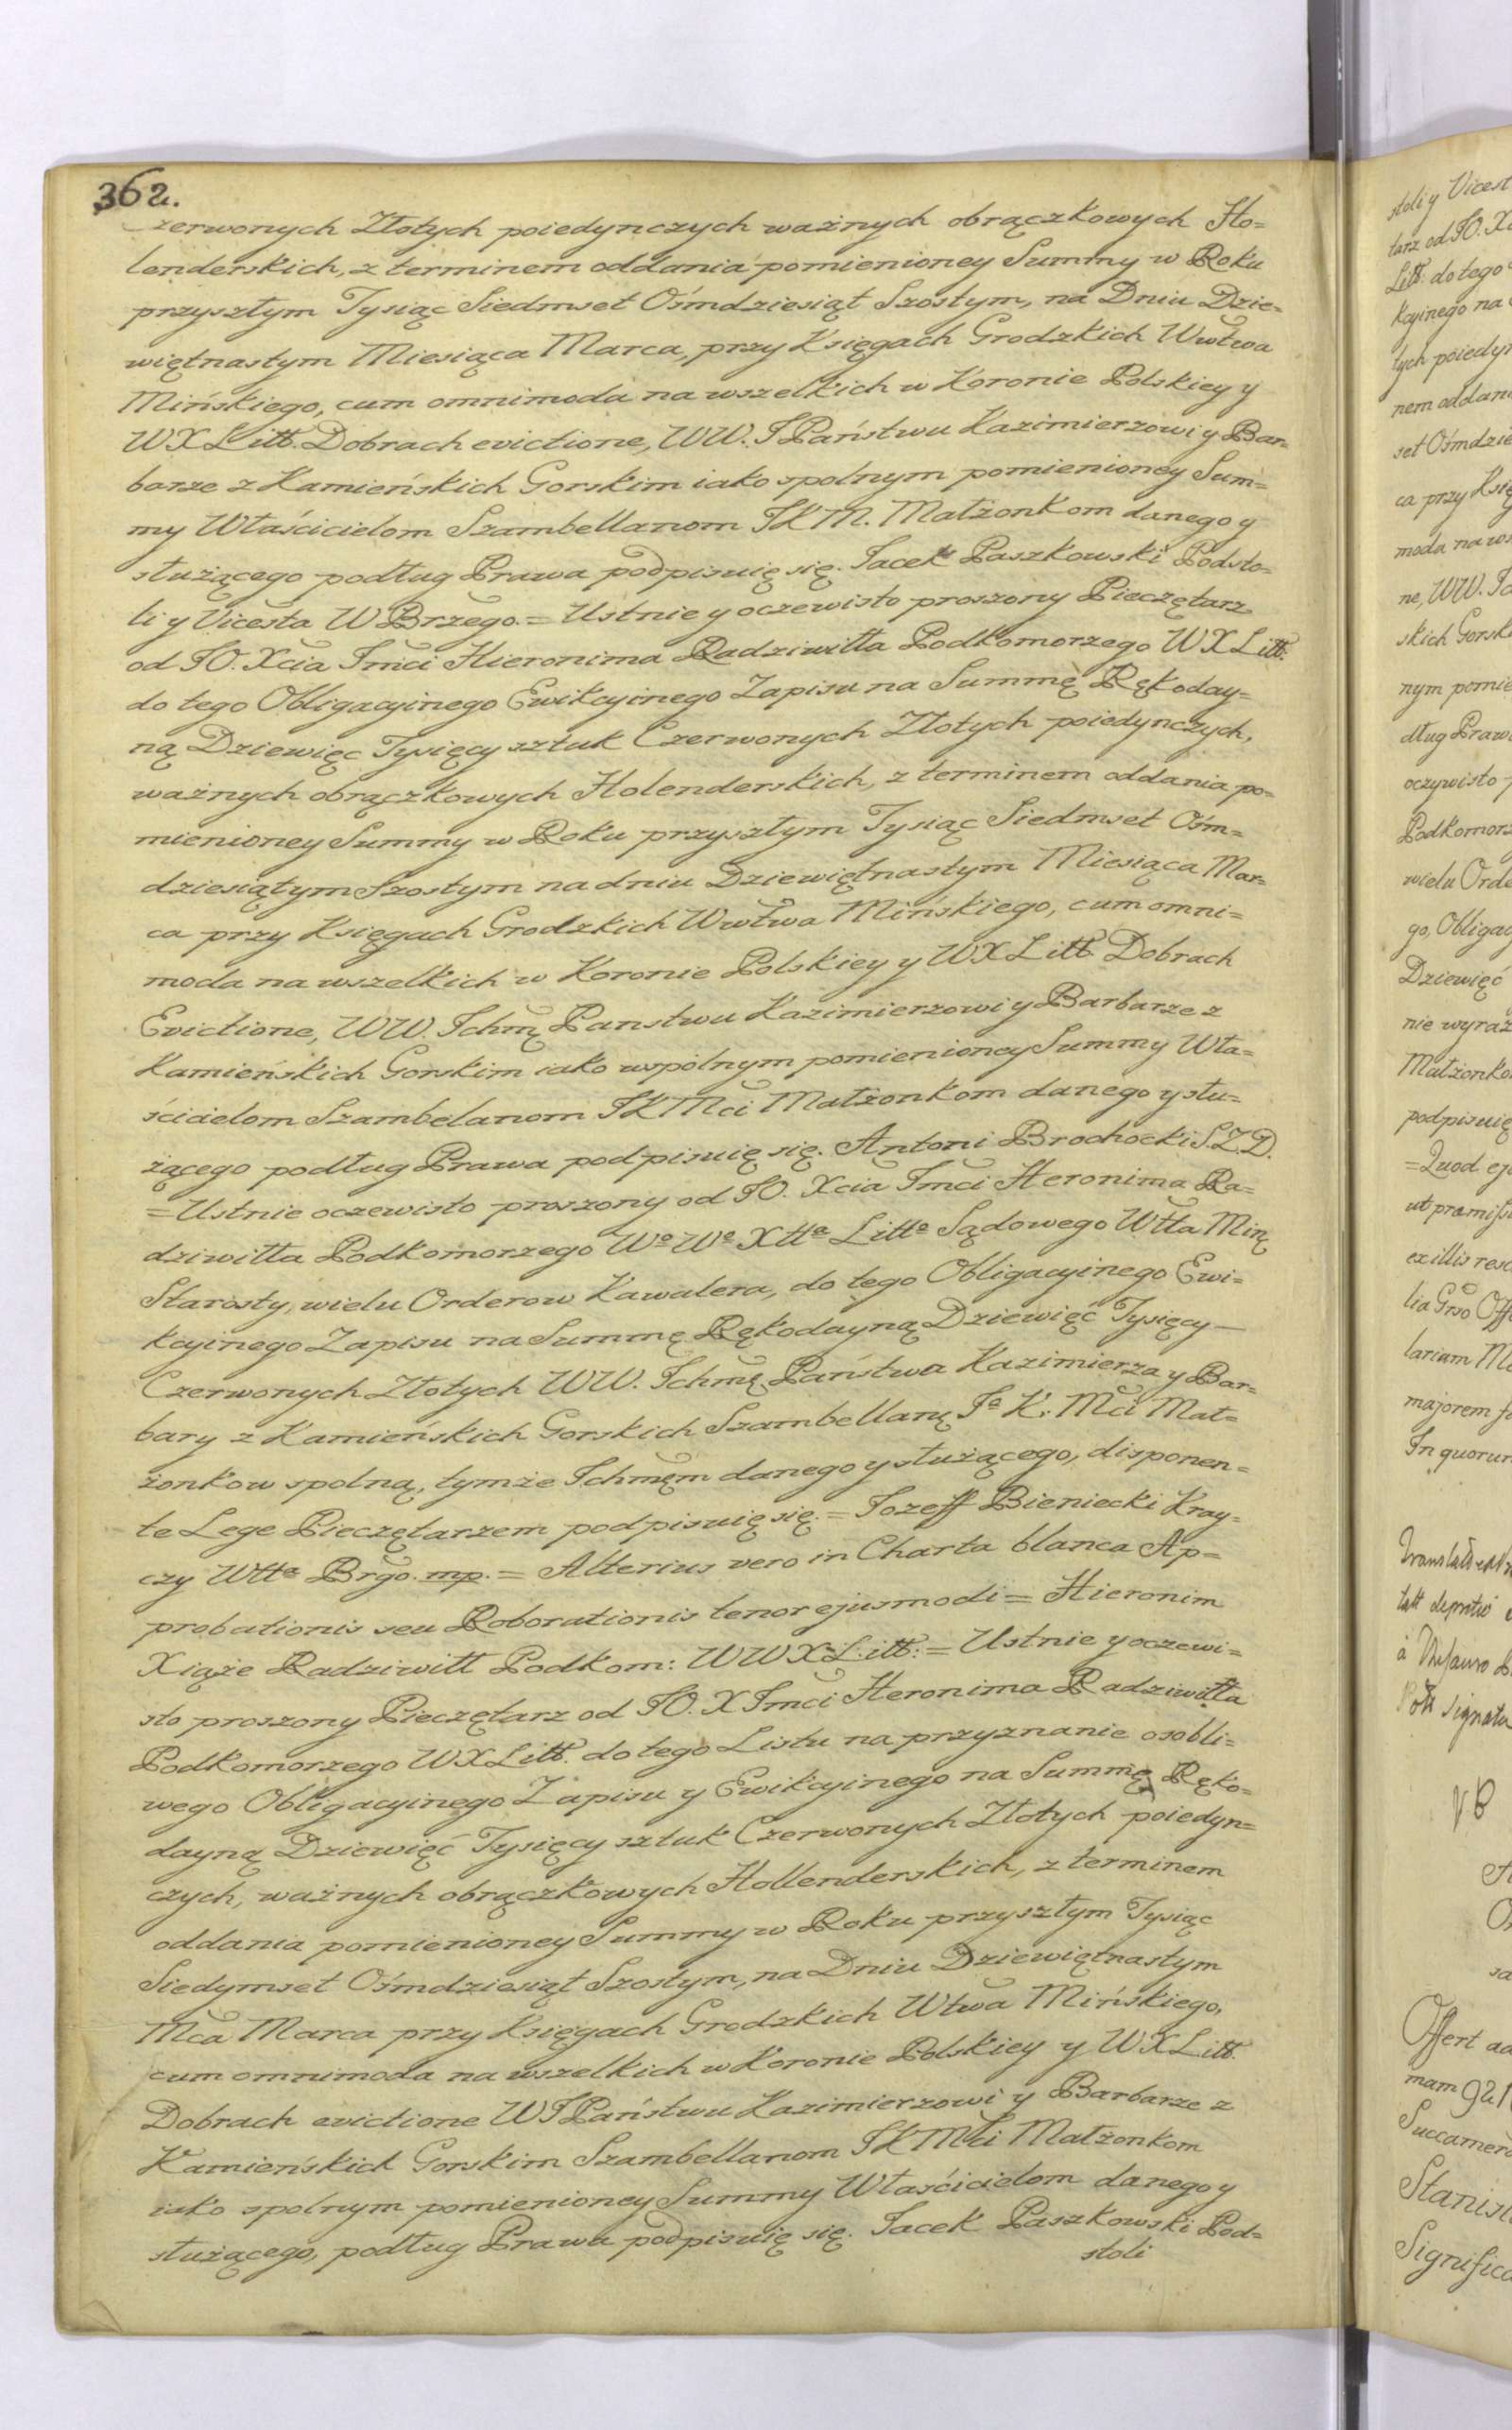 362.
zerwonych Złotych poiedynczych ważnych obrączkowych Ho=
lenderskich, z terminem oddania pomienioney Summy w Roku
przyszłym Tysiąc Siedmset Ośmdziesiąt Szostym, na Dniu Dzie=
więtnastym Miesiąca Marca, przy Xięgach Grodzkich Wwtwa
Mińskiego, cum omnimoda na wszelkich w Koronie Polskiey y
WXLitt. Dobrach evictione, WW. JPaństwu Kazimierzowi y Bar=
barze z Kamieńskich Gorskim iako spolnym pomienioney Sum=
my Właścicielom Szambellanom JKM. Małżonkom danego y
służącego podług Prawa podpisuię się. Jacek Paszkowski Podsto=
li y Vicesta WBrzego. = Ustnie y oczewisto proszony Pieczętarz
od JO. Xcia Jmci Hieronima Radziwiłła Podkomorzego WXLitt.
do tego Obligacyinego Ewikcyinego Zapisu na Summę Rękoday=
ną Dziewięc Tysięcy sztuk Czerwonych Złotych poiedynczych,
ważnych obrączkowych Holenderskich, z terminem oddania po=
mienioney Summy w Roku przyszłym Tysiąc Siedmset Ośm=
dziesiątym Szostym na dniu Dziewiętnastym Miesiąca Mar=
ca przy Xięgach Grodzkich Wwtwa Mińskiego, cum omni=
moda na wszelkich w Koronie Polskiey y WXLitt Dobrach
Evictione, WW. Ichmę Panstwu Kazimierzowi y Barbarze z
Kamieńskich Gorskim iako wspólnym pomienioney Summy Wła=
ścicielom Szambelanom JKMci Małżonkom danego y słu=
żącego podług Prawa podpisuię się. Antoni Brochocki S.Z.D.
= Ustnie oczewisto proszony od JO. Xcia Jmci Heronima Ra=
dziwiłła Podkomorzego Wo Wo Xtta Litto Sądowego Wtta Minę
Starosty, wielu Orderow Kawalera, do tego Obligacyinego Ewi=
kcyinego Zapisu na Summę Rękodayną Dziewięć Tysięcy—
Czerwonych Złotych WW. Ichmę Państwa Kazimierza y Bar=
bary z Kamieńskich Gorskich Szambellanę Jo K: Mci Mał=
żonkow spolną, tymże Ichmęm danego y służącego, disponen=
te Lege Pieczętarzem podpisuię się. = Jozeff Bieniecki Kray=
czy Wtta Brgo. mp. = Alterius vero in Charta blanca Ap=
probationis seu Roborationis tenor ejusmodi = Hieronim
Xiąże Radziwiłł Podkom: WWX.L.itt: = Ustnie y oczewi=
sto proszony Pieczętarz od JO. X Jmci Heronima Radziwiłła
Podkomorzego WXLitt. do tego Listu na przyznanie osobli=
wego Obligacyinego Zapisu y Ewikcyinego na Summę Ręko=
dayną Dziewięć Tysięcy sztuk Czerwonych Złotych poiedyn=
czych, ważnych obrączkowych Hollenderskich, z terminem
oddania pomienioney Summy w Roku przyszłym Tysiąc
Siedymset Ośmdziesiąt Szostym, na Dniu Dziewiętnastym
Mca Marca przy Xięgach Grodzkich Wtwa Mińskiego,
cum omnimoda na wszelkich w Koronie Polskiey y WXLitt.
Dobrach evictione WJPaństwu Kazimierzowi y Barbarze z
Kamieńskich Gorskim Szambellanom JKMci Małżonkom
iako spolnym pomienioney Summy Właścicielom danego y
służącego, podług Prawa podpisuię się. Jacek Paszkowski Pod=
stoli
stoli y Vicest
tarz od JO. X
Litt: do tego
kcyinego na
tych poiedyn
nem oddani
set Ośmdzie
ca przy Xię
moda na ws
ne, WW. J
skich Gorsk
nym pomie
dług Praw
oczywisto
Podkomorz
wielu Orde
go, Obligac
Dziewięć
nie wyraż
Małżonko
podpisuię
= Quod ej
ut præmiss
ex illis res
lia Grso Off
lariam M
majorem f
In quorum
Offert ad
mam 921
Succamer
Stanisl
Significa